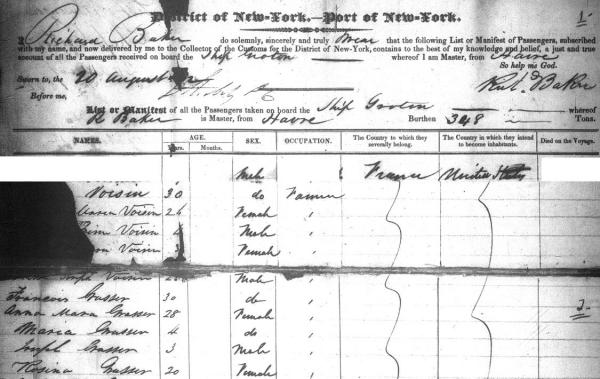 District of New-York.—Port of New-York. 1
I Richard Baker do solemnly, sincerely and truly Swear that the following List or Manifest of Passengers, subscribed
with my name, and now delivered by me to the Collector of the Customs for the District of New-York, contains to the best of my knowledge and belief, a just and true
account of all the Passengers received on board the Ship Groton whereof I am Master, from Havre
So help me God.
Sworn to the 20 August
Richd Baker
Before me,
List or Manifest of all the Passengers taken on board the Ship Groton whereof
R Baker is Master, from Havre Burthen 348 Tons.
NAMES. AGE. SEX. OCCUPATION. The Country to which they severally belong. The Country in which they intend to become inhabitants. Died on the Voyage.
Years. Months.
Male France United States
Voisin 30 do Farmer
Voisin 26 Female "
Voisin 4 Male "
Voisin 3 Female "
Joseph Voisin Male "
Francois Grasser 30 do "
Anna Maria Grasser 28 Female "
Maria Grasser 4 do "
Joseph Grasser 3 Male "
Rosina Grasser 20 Female "